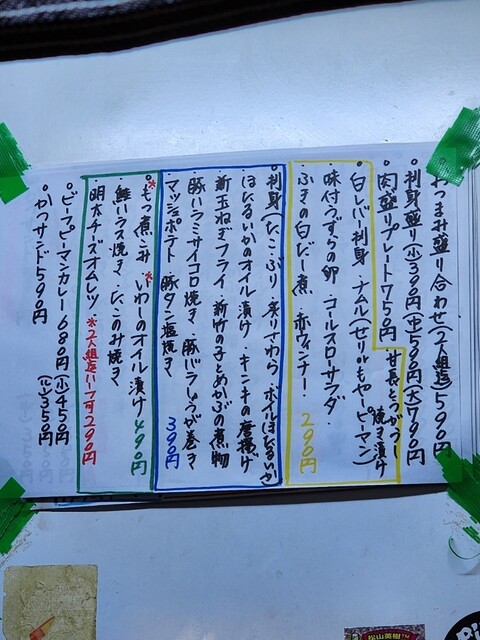 おつまみ盛り合わせ(2人組迄)590円
刺身盛り(小)390円(中)590円(大)790円
肉盛りプレート750円
甘長とうがらし焼き漬け
白レバー刺身・ナムル(セリorもやしピーマン)
味付うずらの卵・コールスローサラダ・
ふきの白だし煮・赤ウィンナー・ 290円
刺身(たこ・ぶり・炙りさわら・ボイルほたるいか)
ほたるいかのオイル漬け・キンキの唐揚げ
新玉ねぎフライ・新竹の子とめかぶの煮物
豚ハラミサイコロ焼き・豚バラしょうが巻き
マッシュポテト・豚タン塩焼き 390円
*もつ煮こみ・*いわしのオイル漬け 490円
・鮭ハラス焼き・たこのみ焼き
明太チーズオムレツ・*2人組迄ハーフ可290円
ビーフピーマンカレー680円(小)450円
かつサンド590円 (ルー)350円
松山英樹